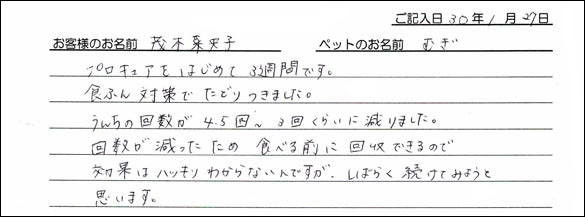 ご記入日 30年 1月 27日
お客様のお名前 茂木菜史子 ペットのお名前 むぎ
プロキュアをはじめて 3週間です。
食ふん対策で たどりつきました。
うんちの回数が 4.5回~3回くらいに減りました。
回数が減ったため 食べる前に回収できるので
効果はハッキリわからないんですが、しばらく続けてみようと
思います。